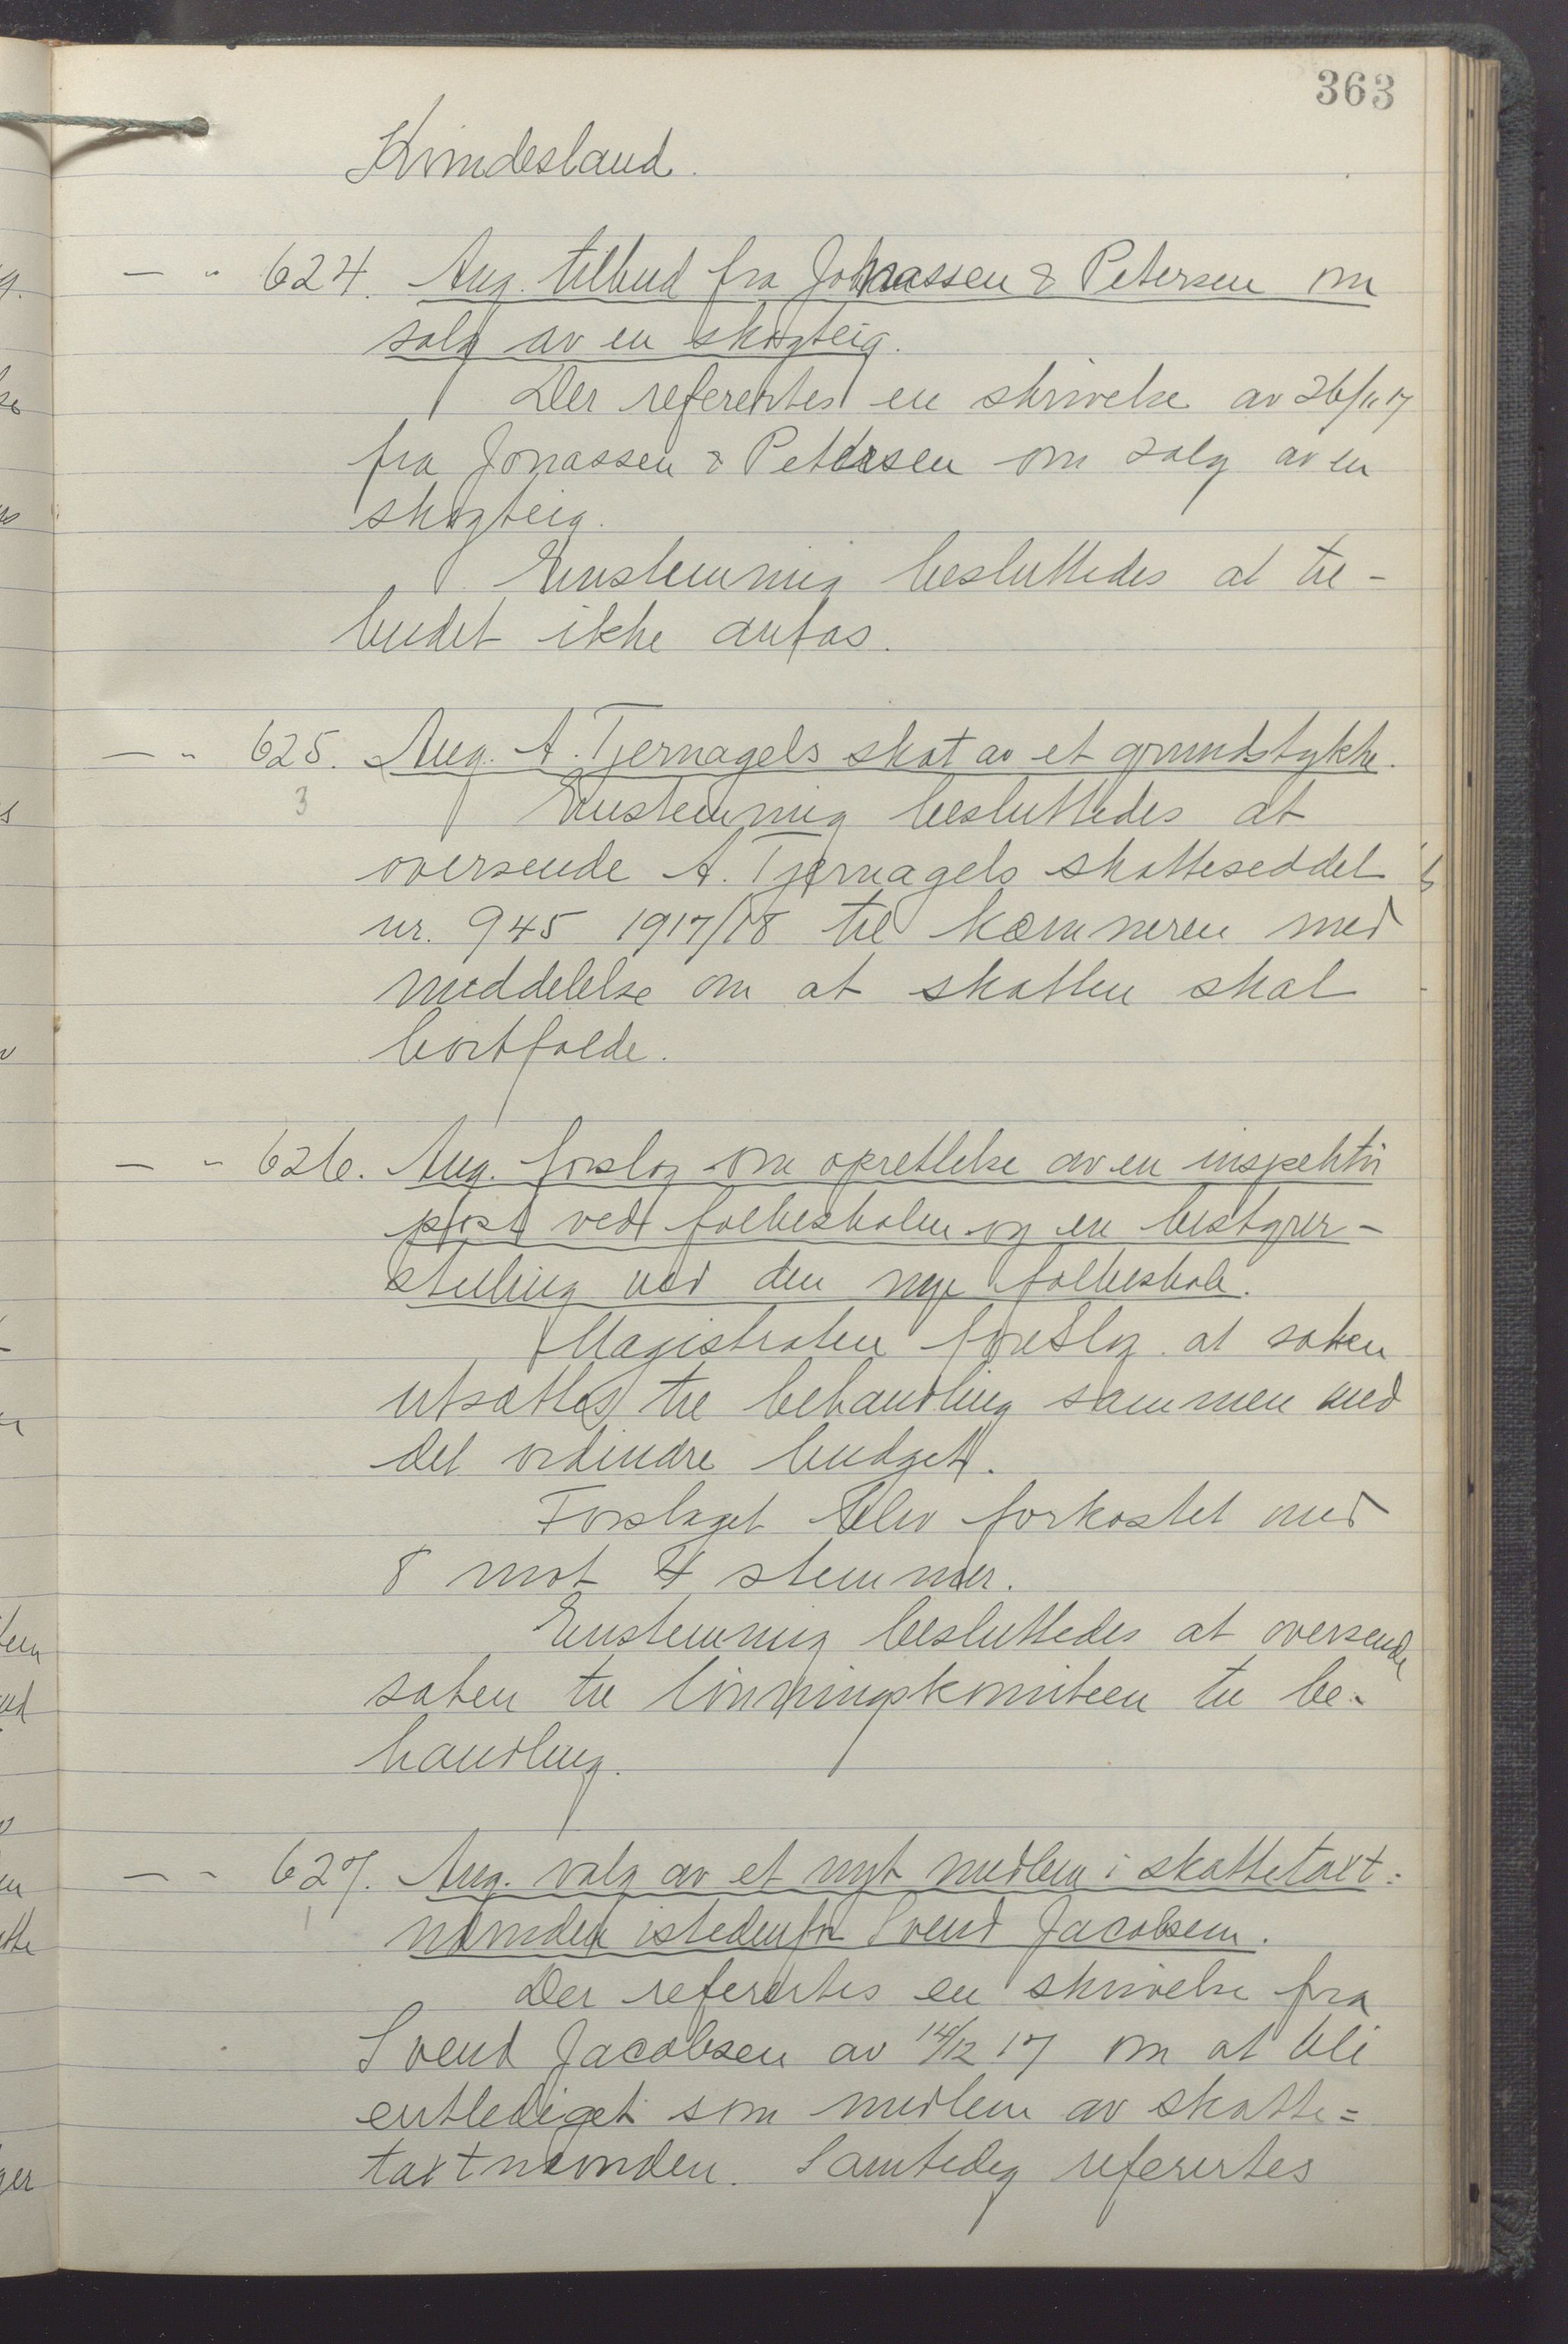 363
Kvindesland.
— " 624. Ang. tilbud fra Jonassen & Petersen om
salg av en skogteig.
Der refertes en skrivelse av 26/11 17
fra Jonassen & Petersen om salg av en
skogteig.
Enstemmig besluttedes at til-
budet ikke antas.
— " 625. Ang. A. Tjernagels skat av et grundstykke.
3 Enstemmig besluttedes at
oversende A. Tjernagels skatteseddel
nr. 945 1917/18 til kæmneren med
meddelelse om at skatten skal
bortfalde.
— " 626. Ang. forslag om oprettelse av en inspektør
post ved folkeskolen og en bestyrer-
stilling ved den nye folkeskole.
Magistraten foreslog at saken
utsættes til behandling sammen med
det ordinære budget.
Forslaget blev forkastet med
8 mot 4 stemmer.
Enstemmig besluttedes at oversende
saken til lønningskomiteen til be-
handling.
— " 627. Ang. valg av et nyt medlem i skattetakst=
1 nævnden istedenfor Svend Jacobsen.
Der refertes en skrivelse fra
Svend Jacobsen av 14/12 17 om at bli
entlediget som medlem av skatte=
takstnævnden. Samtidig refertes